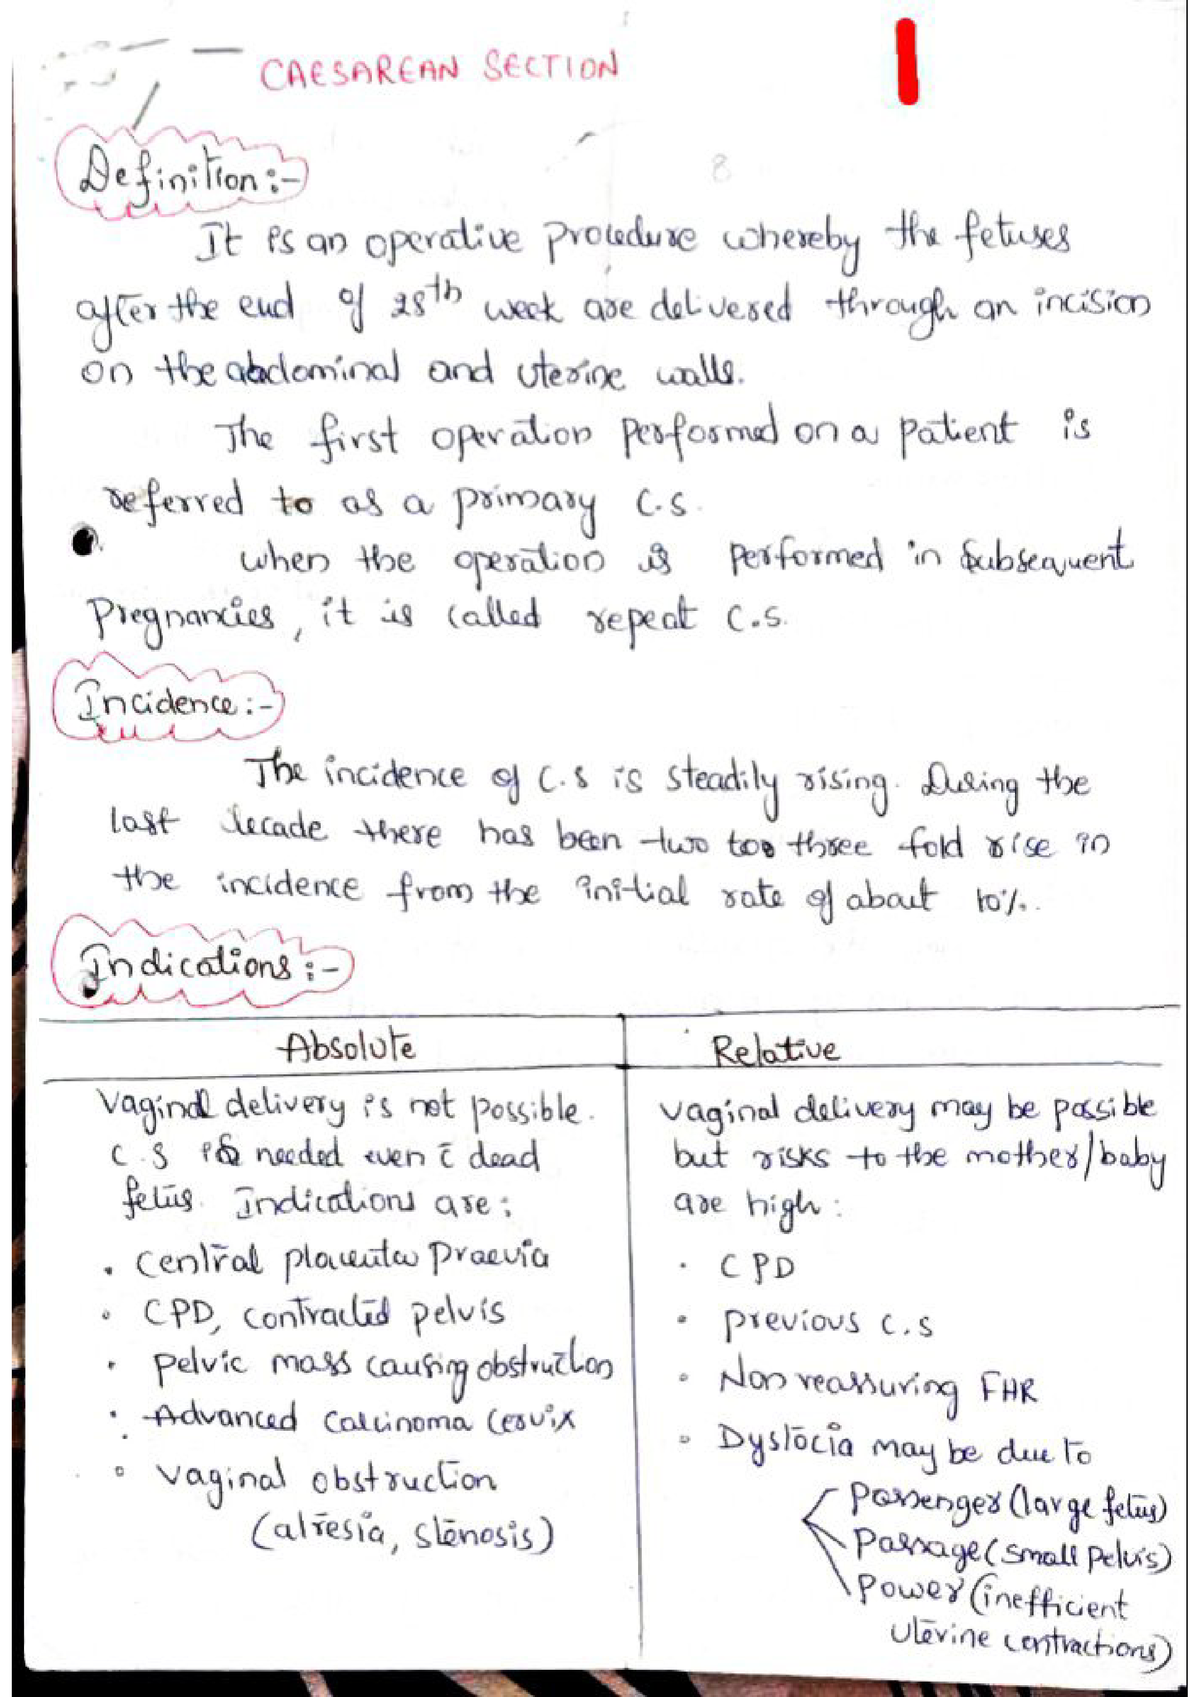 CAESAREAN SECTION
8
Definition:-
It is an operative procedure whereby the fetuses
after the end of 28th week are delivered through an incision
on the abdominal and uterine walls.
The first operation performed on a patient is
referred to as a primary C.S.
when the operation is performed in subsequent
Pregnancies, it is called repeat C.S.
Incidence:-
The incidence of C.S is steadily rising. During the
last decade there has been two too three fold rise in
the incidence from the initial rate of about 10%.
Indications:-
Absolute
Vaginal delivery is not possible.
C.S is needed even c̄ dead
fetus. Indications are:
• Central placenta praevia
• CPD, contracted pelvis
• pelvic mass causing obstruction
• Advanced Carcinoma Cervix
• vaginal obstruction
(atresia, stenosis)
Relative
vaginal delivery may be possible
but risks to the mother/baby
are high:
• CPD
• previous C.S
• Non reassuring FHR
• Dystocia may be due to
Passenger (large fetus)
Passage (small pelvis)
Power (inefficient
uterine contractions)